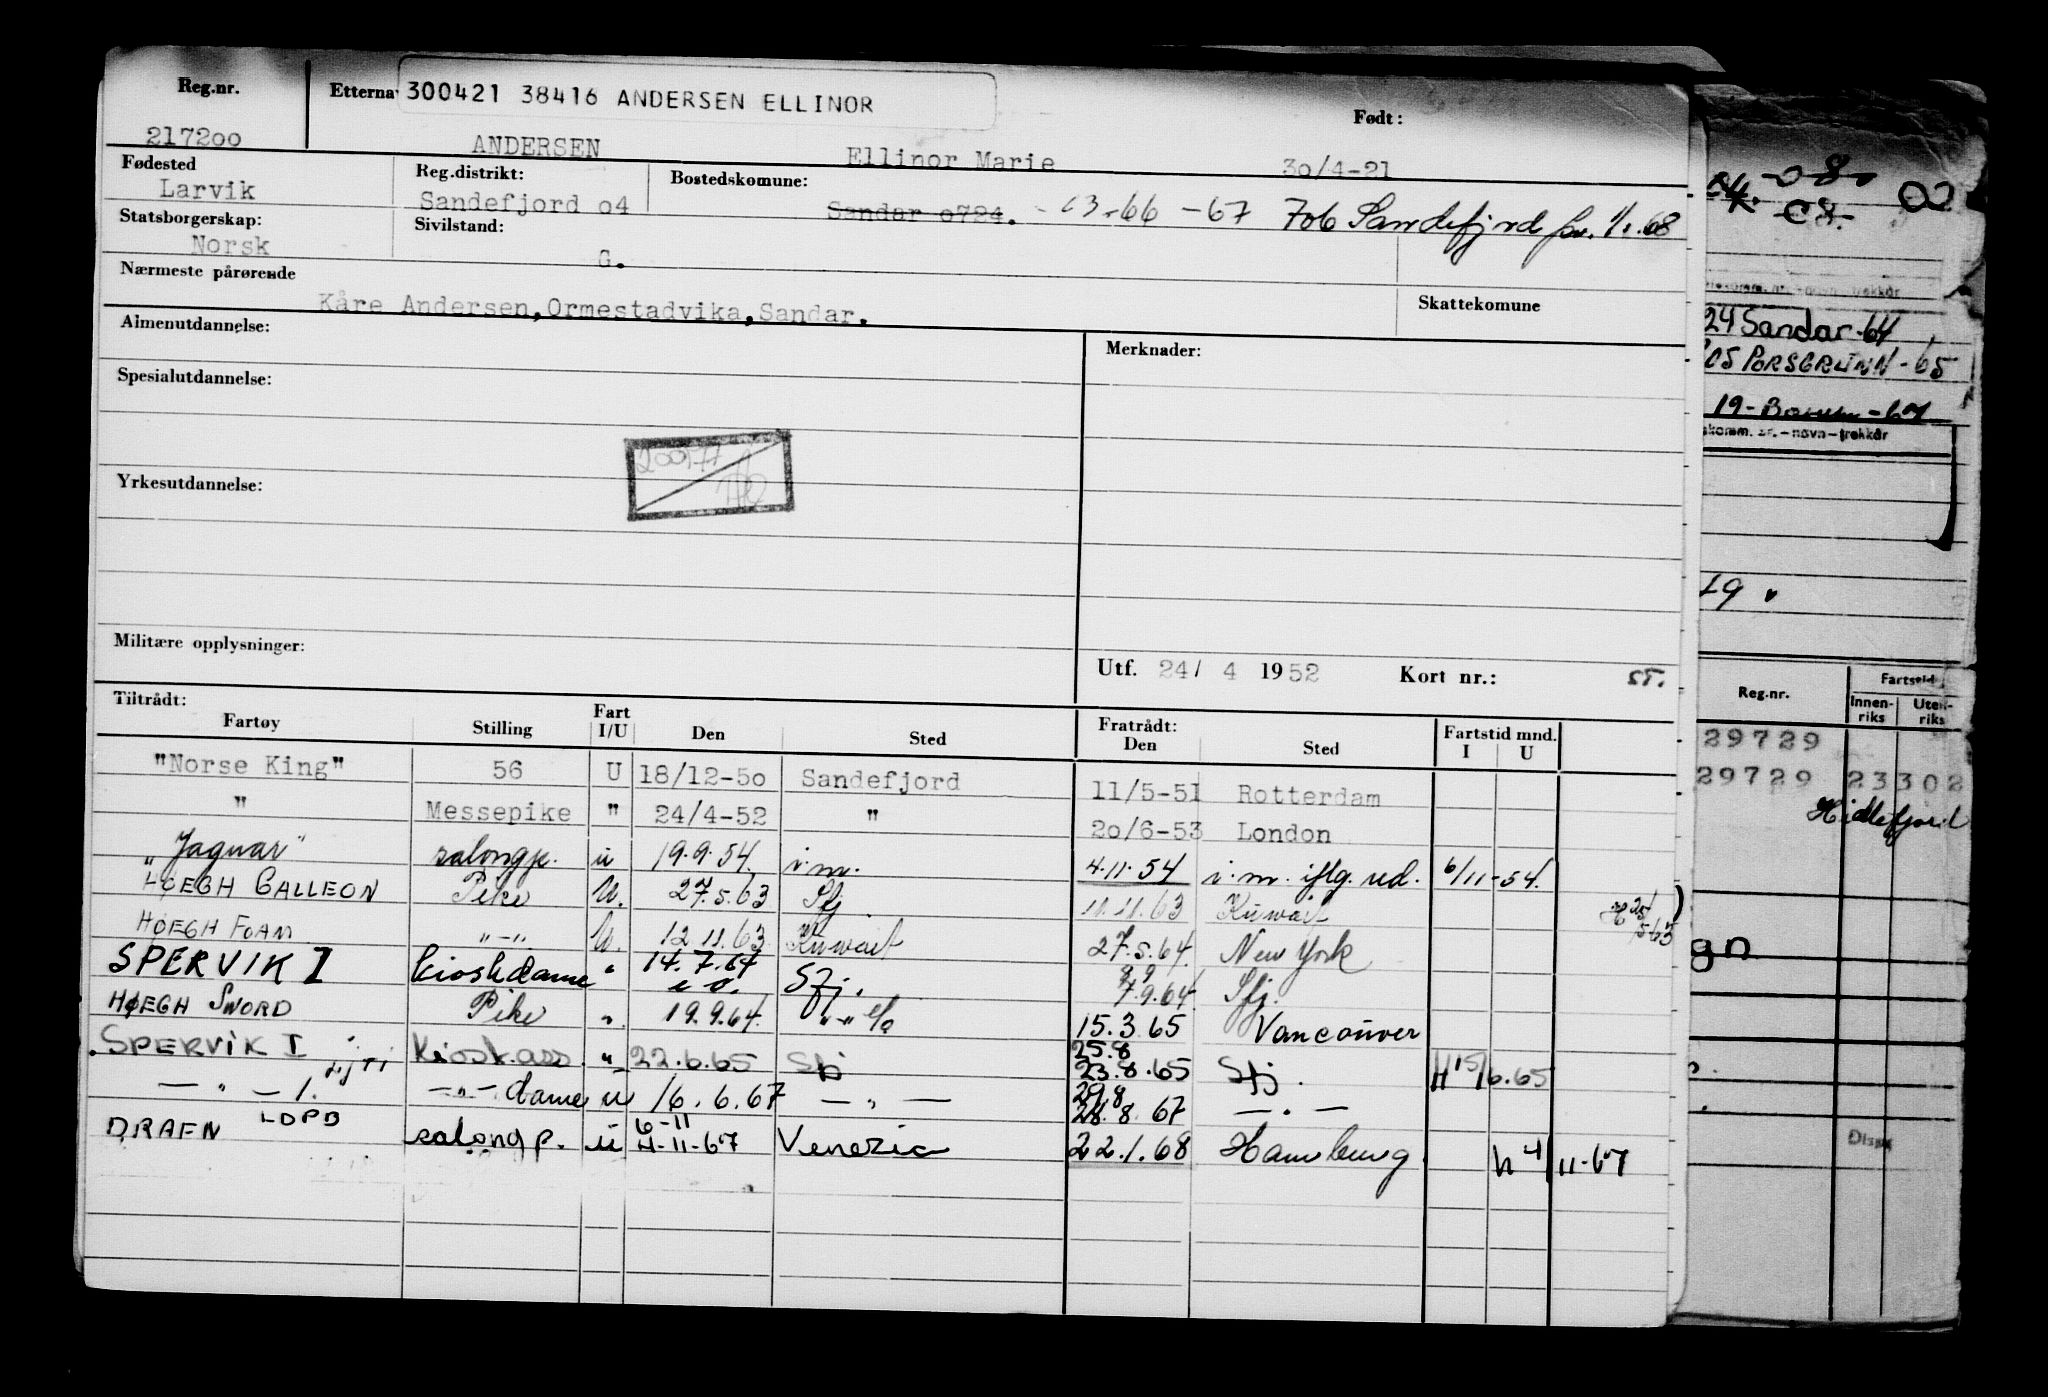 Reg.nr. Etterna 300421 38416 ANDERSEN ELLINOR Født:
217200 ANDERSEN Ellinor Marie 30/4-21
Fødested Reg.distrikt: Bostedskomune:
Larvik Sandefjord 04 Sandar 0724. -66 -67 706 Sandefjord 68
Statsborgerskap: Sivilstand:
Norsk G.
Nærmeste pårørende Skattekomune
Kåre Andersen, Ormestadvika, Sandar.
Almenutdannelse: Merknader:
Spesialutdannelse:
Yrkesutdannelse:
Militære opplysninger:
Utf. 24/ 4 1952 Kort nr.:
Tiltrådt: Fart Fratrådt: Fartstid mnd.
Fartøy Stilling I/U Den Sted Den Sted I U
"Norse King" 56 U 18/12-50 Sandefjord 11/5-51 Rotterdam
" Messepike " 24/4-52 " 20/6-53 London
"Jaguar" salongp. u 19.9.54. i.m. 4.11.54 i.m. iflg. rd. 6/11-54.
HØEGH GALLEON Pike U. 27.5.63 Sfj 11.11.63 Kuwait
HØEGH FOAM -"- U. 12.11.63 Kuwait 27.5.64. New York
SPERVIK I kioskdame " 14.7.64 Sfj. 7.9.64 Sfj.
HØEGH SWORD Pike " 19.9.64. -"- 15.3.65 Vancouver
25.8
SPERVIK I kioskass. " 22.6.65 Sfj 23.8.65 Sfj. 6.65
29.8
-"- 1. -"- dame u 16.6.67 -"- 28.8.67 -"-
6-11
DRAFN LDPB salongp. u 4-11-67 Venezia 22.1.68 Hamburg 4/11-67
08
08. 00
24 Sandar-64
05 PORSGRUNN-65
19-
skomm. nr.-navn-trekkår
Reg.nr. Fartseid
Innenriks Utenriks
29729
29729 23302
gn